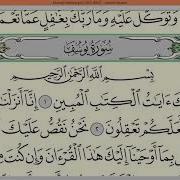 وَتَوَكَّلْ عَلَيْهِ وَمَا رَبُّكَ بِغَٰفِلٍ عَمَّا تَعْمَ
سُورَةُ يُوسُفَ
بِسْمِ ٱللَّهِ ٱلرَّحْمَٰنِ ٱلرَّحِيمِ
كَ ءَايَٰتُ ٱلْكِتَٰبِ ٱلْمُبِينِ ١ إِنَّآ أَنزَلْنَ
لَّعَلَّكُمْ تَعْقِلُونَ ٢ نَحْنُ نَقُصُّ عَلَيْكَ
بِمَآ أَوْحَيْنَآ إِلَيْكَ هَٰذَا ٱلْقُرْءَانَ وَإِن كُنتَ مِ